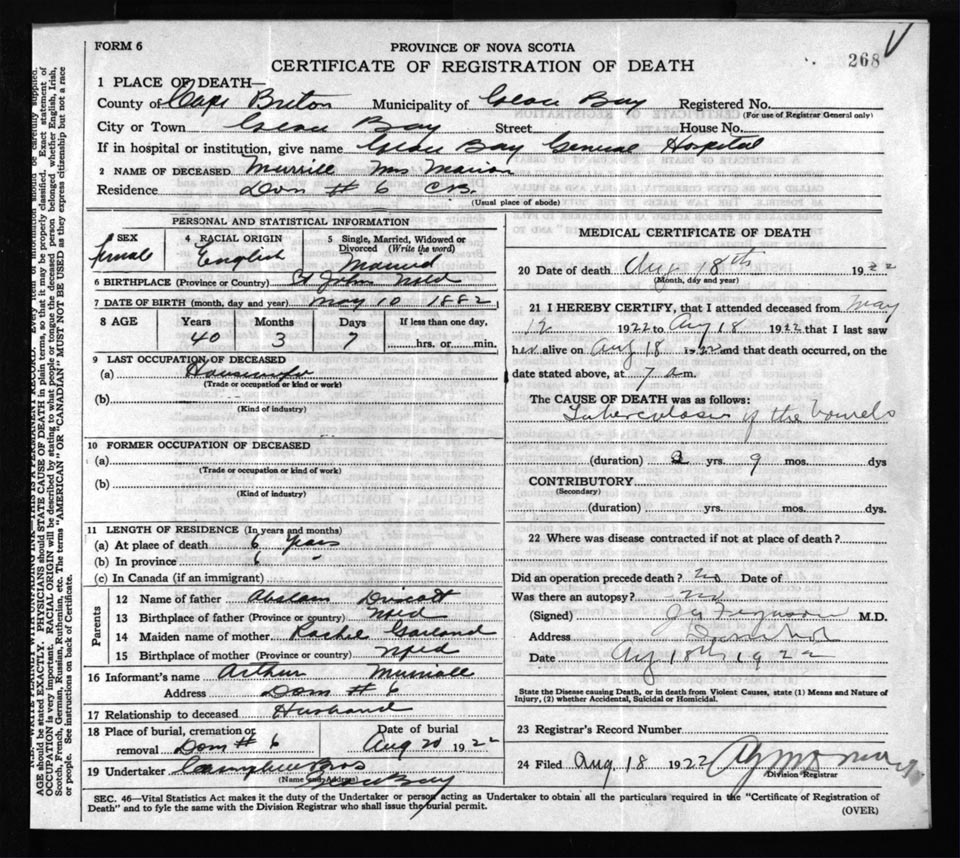 FORM 6
PROVINCE OF NOVA SCOTIA
268
CERTIFICATE OF REGISTRATION OF DEATH
1 PLACE OF DEATH—
County of Cape Breton Municipality of Glace Bay Registered No.
(For use of Registrar General only)
City or Town Glace Bay Street House No.
If in hospital or institution, give name Glace Bay General Hospital
2 NAME OF DECEASED Murrill Mrs Marion
Residence Dom # 6 C.B.
(Usual place of abode)
PERSONAL AND STATISTICAL INFORMATION
3 SEX female
4 RACIAL ORIGIN English
5 Single, Married, Widowed or Divorced (Write the word) Married
6 BIRTHPLACE (Province or Country) St John Nfld
7 DATE OF BIRTH (month, day and year) May 10 1882
8 AGE Years Months Days If less than one day,
40 3 7 hrs. or min.
9 LAST OCCUPATION OF DECEASED
(a) Housewife
(Trade or occupation or kind or work)
(b)
(Kind of industry)
10 FORMER OCCUPATION OF DECEASED
(a)
(Trade or occupation or kind of work)
(b)
(Kind of industry)
11 LENGTH OF RESIDENCE (In years and months)
(a) At place of death 6 years
(b) In province 6 "
(c) In Canada (if an immigrant)
Parents
12 Name of father Driscoll
13 Birthplace of father (Province or country) Nfld
14 Maiden name of mother Rachel Garland
15 Birthplace of mother (Province or country) Nfld
16 Informant's name Arthur Murrill
Address Dom # 6
17 Relationship to deceased Husband
18 Place of burial, cremation or removal Dom # 6
Date of burial Aug 20 1922
19 Undertaker Campbell Bros
(Name and Address)
Glace Bay
MEDICAL CERTIFICATE OF DEATH
20 Date of death Aug 18th 1922
(Month, day and year)
21 I HEREBY CERTIFY, that I attended deceased from May
12 1922 to Aug 18 1922 that I last saw
her alive on Aug 18 1922 and that death occurred, on the
date stated above, at 7 a.m.
The CAUSE OF DEATH was as follows:
Tuberculosis of the bowels
(duration) 2 yrs. 9 mos. dys
CONTRIBUTORY
(Secondary)
(duration) yrs. mos. dys.
22 Where was disease contracted if not at place of death?
Did an operation precede death? No Date of
Was there an autopsy? No
(Signed) Ferguson M.D.
Address Dominion
Date Aug 18th 1922
State the Disease causing Death, or in death from Violent Causes, state (1) Means and Nature of
Injury, (2) whether Accidental, Suicidal or Homicidal.
23 Registrar's Record Number
24 Filed Aug 18 1922
Division Registrar
SEC. 46—Vital Statistics Act makes it the duty of the Undertaker or person acting as Undertaker to obtain all the particulars required in the "Certificate of Registration of
Death" and to fyle the same with the Division Registrar who shall issue the burial permit.
(OVER)
AGE should be stated EXACTLY. PHYSICIANS should STATE CAUSE OF DEATH in plain terms, so that it may be properly classified. Exact statement of
OCCUPATION is very important. RACIAL ORIGIN will be described by stating to what people or tongue the deceased person belonged whether English, Irish,
Scotch, French, German, Russian, Ruthenian, etc. The terms "AMERICAN" OR "CANADIAN" MUST NOT BE USED as they express citizenship but not a race
or people. See instructions on back of Certificate.